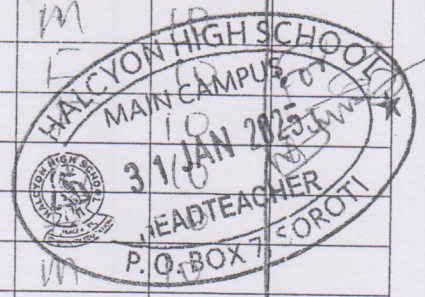 M 10
HALCYON HIGH SCHOOL
MAIN CAMPUS
10
31 JAN 2025
10
HEADTEACHER
P. O. BOX 7, SOROTI
HALCYON HIGH SCHOOL
M